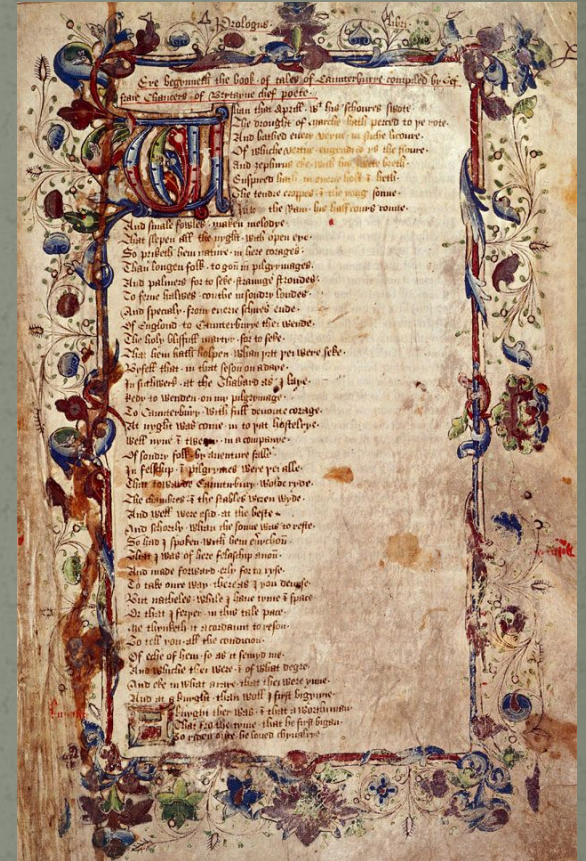 Prologus libri
Here begynneth the book of tales of Caunterburye compiled by Gef
fraie Chaucers of Brytayne chef poete
Whan that Aprill wt his schoures swote
The drought of marche hath perced to ye rote
And bathed euery veyne in suche licoure
Of whiche vertue engendrid is the floure
And zephirus eke with his swete breth
Enspired hath in euery holt & heth
The tendre croppes & the yong sonne
Into the Ram his half cours ronne
And smale fowles maken melodye
That slepen all the nyght with open eye
So priketh hem nature in here corages
Than longen folk to gon in pilgrymages
And palmers for to seke straunge strondes
To ferne halwes couthe in sondry londes
And specialy from euerie schires ende
Of Englond to Caunterburye thei wende
The holy blisfull martyr for to seke
That hem hath holpen whan yat yei were seke
Byfell that in that seson on a daye
In suthwerk at the Thabard as I laye
Redy to wenden on my pilgrymage
To Caunterbury with full deuoute corage
At nyght was come in to yat hostelrye
Well nyne & twenty in a companye
Of sondry folk by auenture falle
In felschip & pilgrymes were yei alle
That towarde Caunterbury wolde ryde
The chambres & the stables weren wyde
And well were esid at the beste
And schortly whan the sonne was to reste
So had I spoken with hem euerychon
That I was of here felaschip anon
And made forward erly for to ryse
To take oure way there as I you deuyse
But natheles while I haue tyme & space
Or that I feryer in this tale pace
Me thynketh it acordaunt to reson
To tell you all the condicion
Of eche of hem so as it semyd me
And whiche thei were & of what degre
And eke in what araye that thei were ynne
And at a knyght than woll I first bigynne
A knyght ther was & that a worthi man
That fro the tyme that he first bigan
To riden oute he loued chyualrye